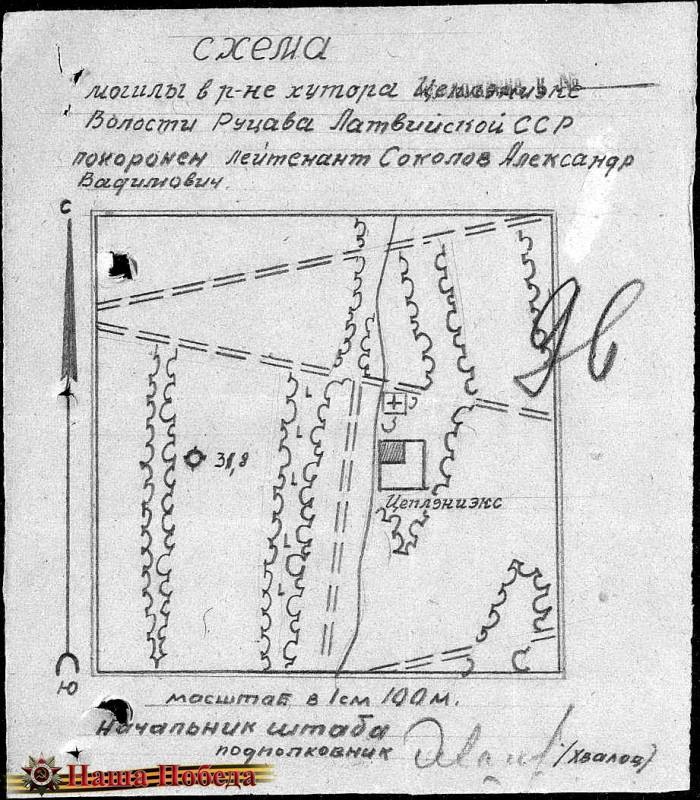 схема
могилы в р-не хутора
Волости Руцава Латвийской ССР
похоронен лейтенант Соколов Александр
Вадимович.
С
31,8
Цеплэниэкс
Ю
масштаб в 1см 100м.
Начальник штаба
подполковник (Хвалов)
Наша Победа